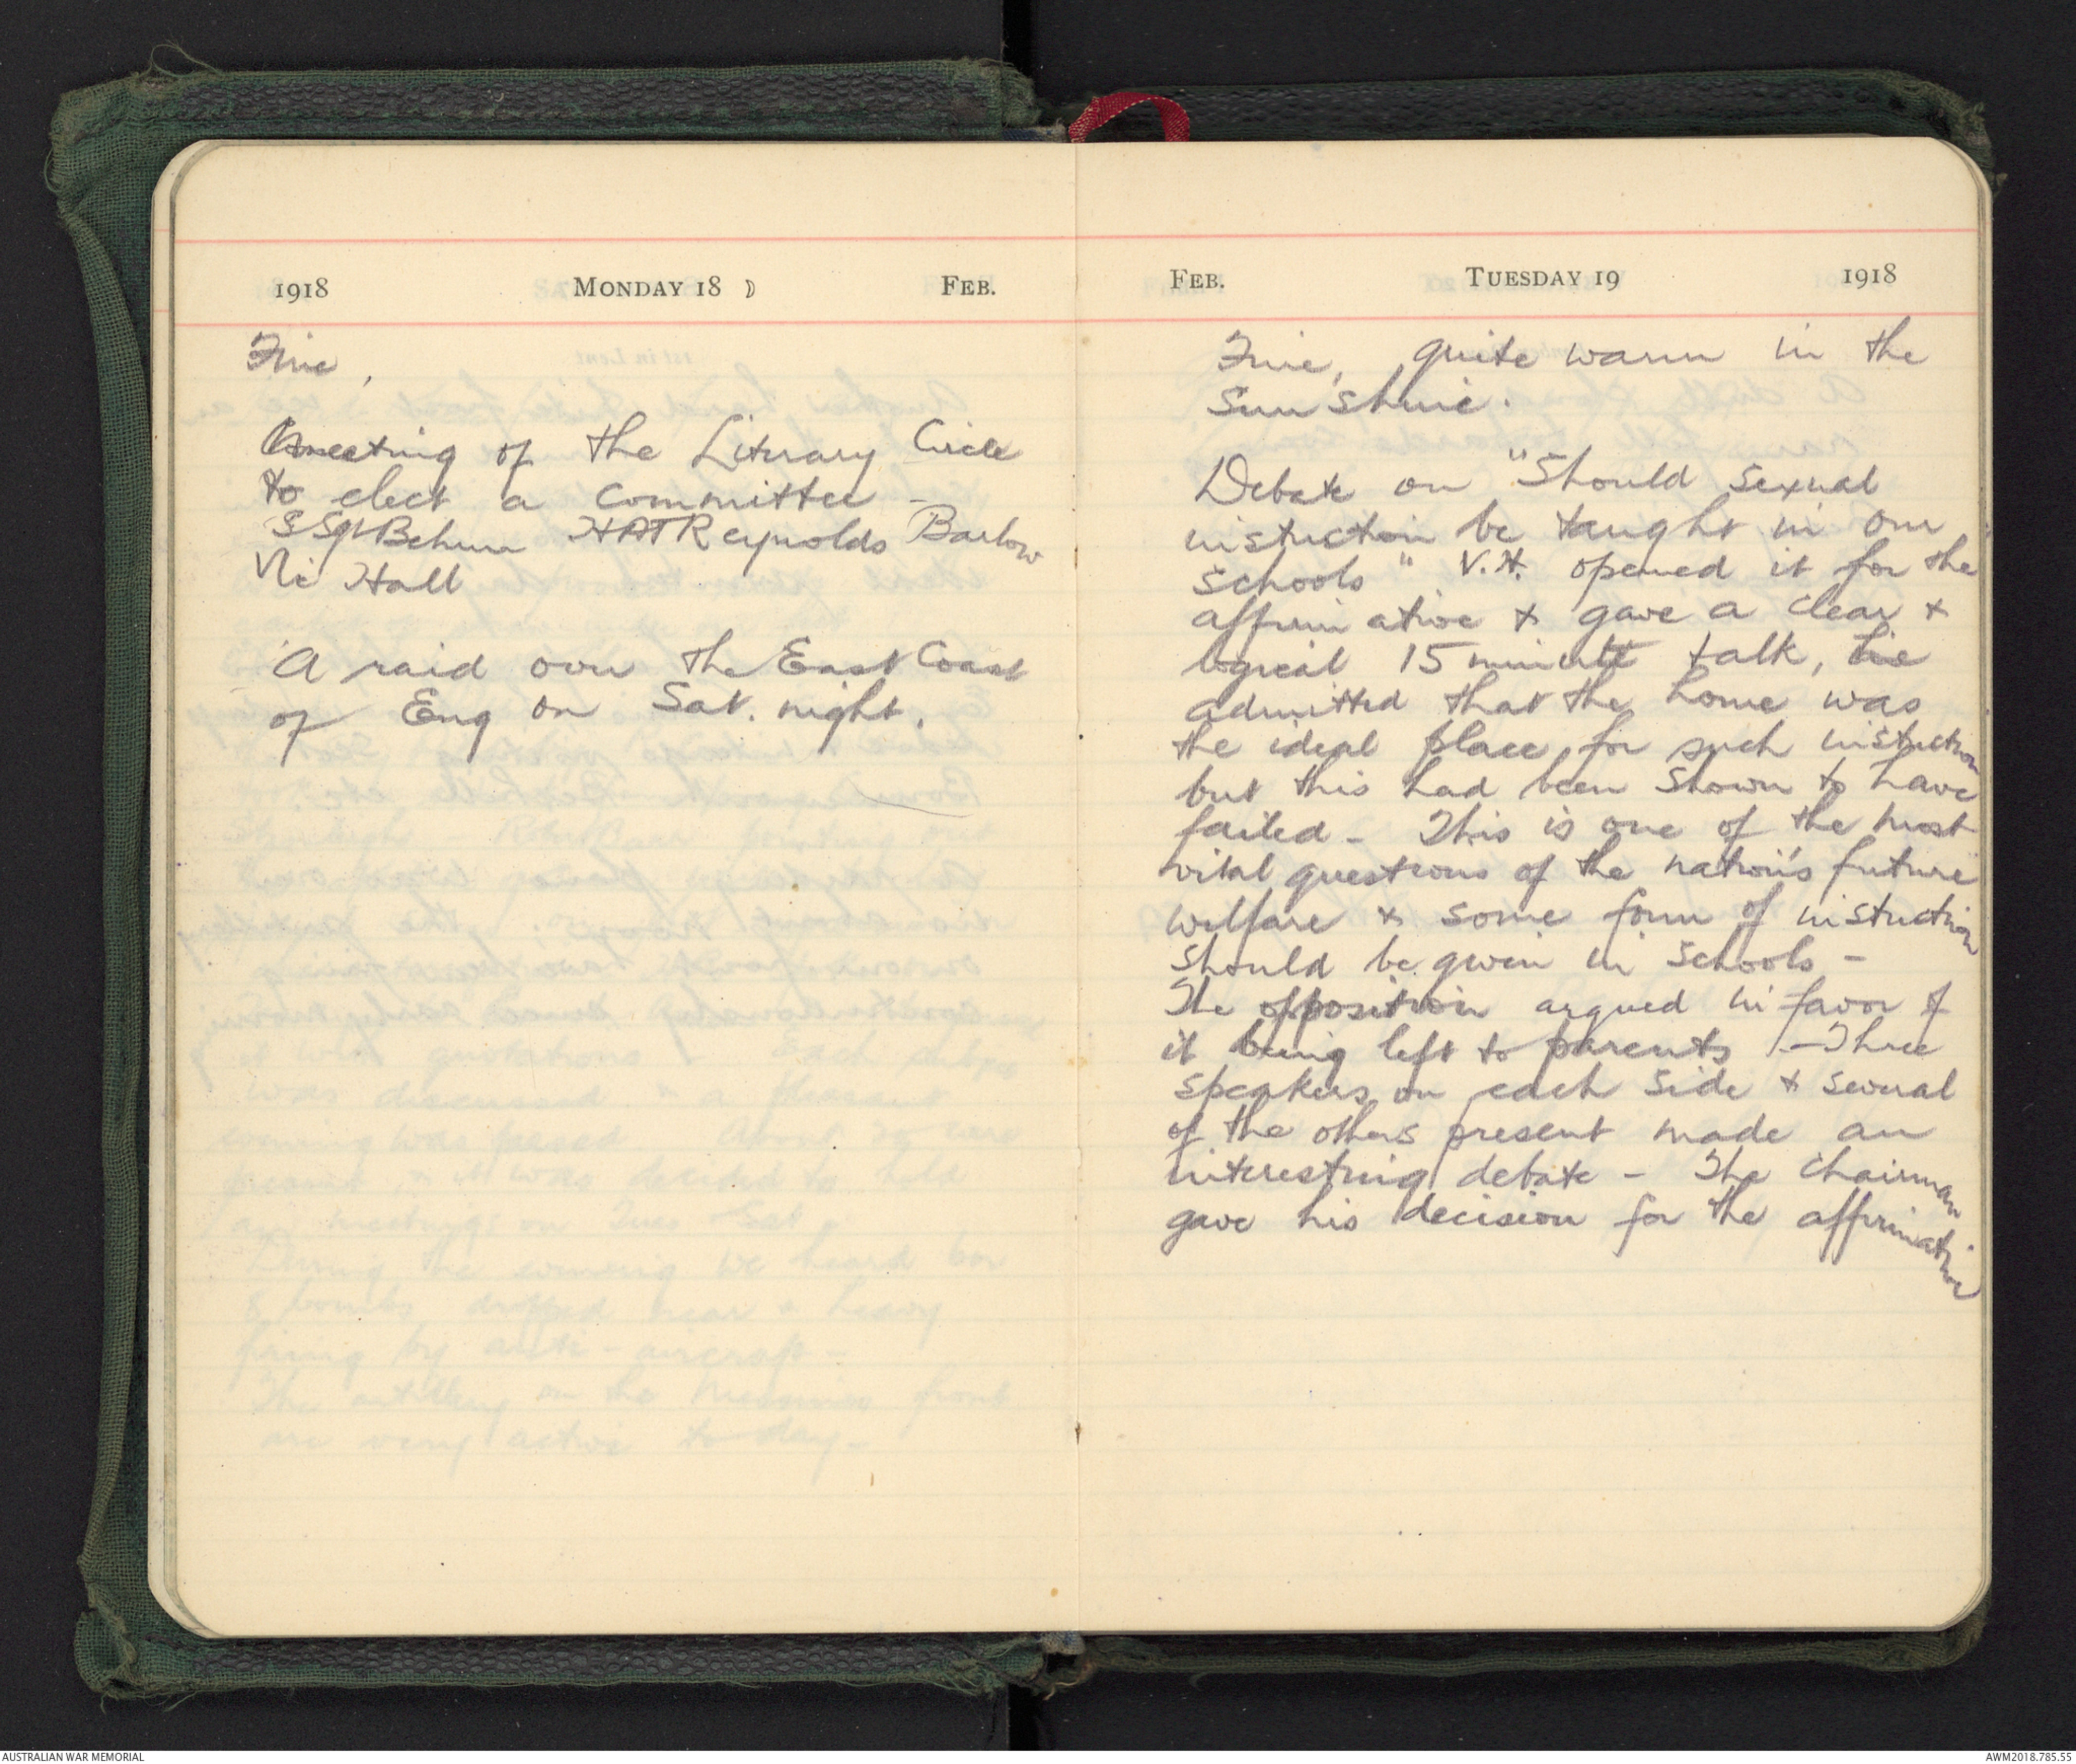 1918 MONDAY 18 FEB.
Fine,
A meeting of the Literary Circle
to elect a committee -
S Sgt Behm HATReynolds Barlow
Vic Hall
A raid over the East Coast
of Eng on Sat. night.
FEB. TUESDAY 19 1918
Fine, quite warm in the
sunshine.
Debate on "Should sexual
instuction be taught in our
schools" V.H. opened it for the
affirmative & gave a clear &
logical 15 minute talk, he
admitted that the home was
the ideal place for such instuction
but this had been shown to have
failed - This is one of the most
vital questions of the nation's future
welfare & some form of instuction
should be given in schools -
The opposition argued in favor of
it being left to parents - Three
speakers on each side & several
of the others present made an
interesting debate - The chairman
gave his decision for the affirmative
AUSTRALIAN WAR MEMORIAL
AWM2018.785.55